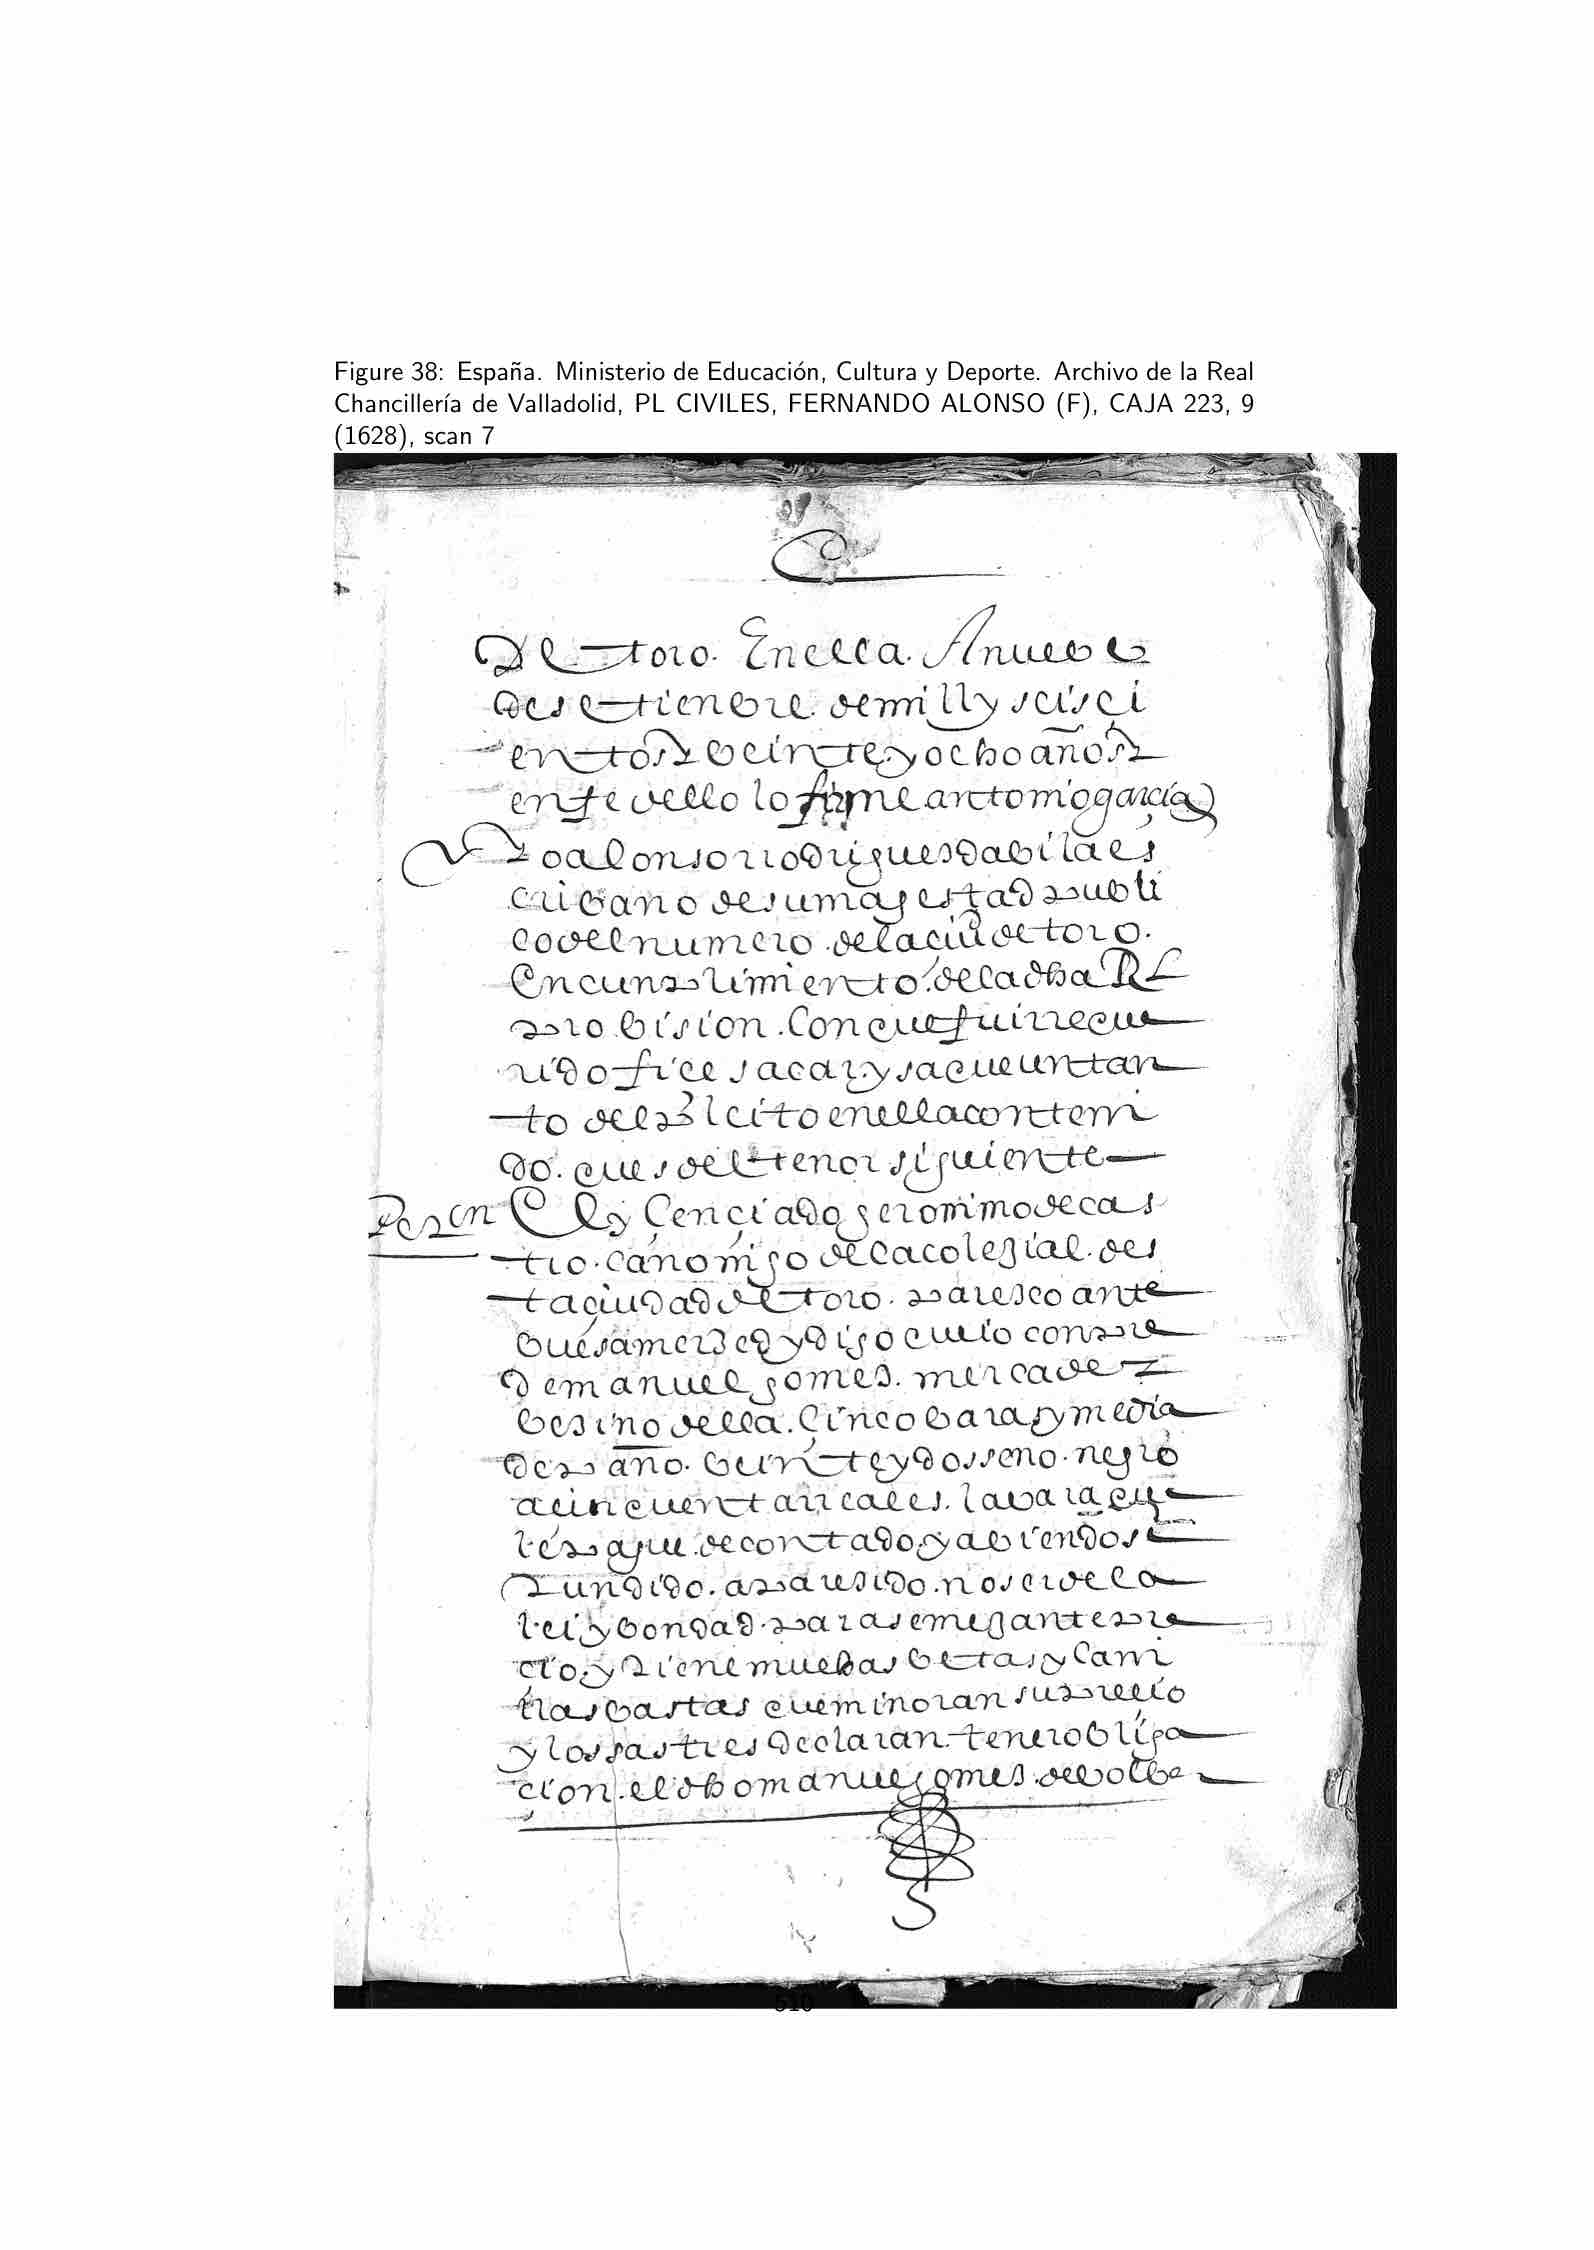 Figure 38: España. Ministerio de Educación, Cultura y Deporte. Archivo de la Real
Chancillería de Valladolid, PL CIVILES, FERNANDO ALONSO (F), CAJA 223, 9
(1628), scan 7
del toro. En ella. A nuebe
de setienbre. de mill y seisçi
entos y beinte y ocho años y
en fe dello lo firme antonio garcia
Yo alonso rrodrigues dabila es
cribano de su magestad publi
co del numero de la çiud de toro.
En cunplimiento de la dha Rl
probision. Con que fui rreque
rido fice sacar y saque un tan
to del pleito en ella conteni
do. que es del tenor siguiente
Peon El liçençiado geronimo de cas
tro. canonigo de la colegial. des
ta çiudad de toro. paresco ante
buesa merzed y digo que io conpre
de manuel gomes. mercader
besino della. çinco baras y media
de pano. beinte y dosseno. negro
a cinquenta rreales. la bara que
le pague. de contado. y abiendose
tundido. a paresido. no ser de la
lei y bondad. para semejante pre
cio. y tiene muchas betas y Cani
llas bastas que minoran su preçio
y los sastres declaran. tener obliga
çion. el dho manuel gomes. de bolbe
510